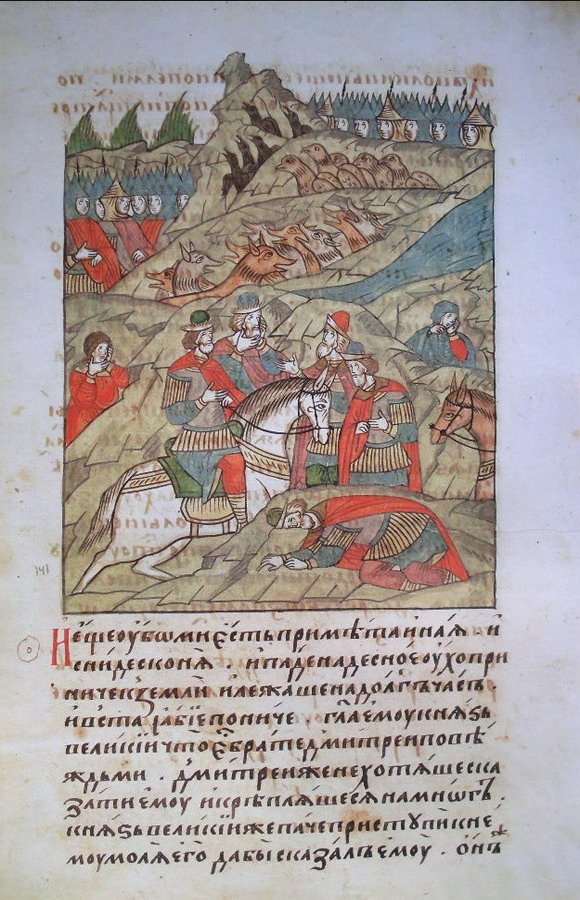 Ещеоубѡмиєстьпримѣтаинаѧ . и
снидесконѧ . ипаденадесноеоухопри
ничекземлиилежашенадолгъчасъ .
ивъстаабїепониче . гл҃аемоукнѧѕь
великїичтоєбратедмитреиповѣ
ждьми . дмитреиженехотѧшесказ
затиємоу икрѣплѧѧшесѧнамнѡгъ .
кнѧѕьвеликїижепачеприступикне
моумолѧегѡ дабысказалъемоу . онъ